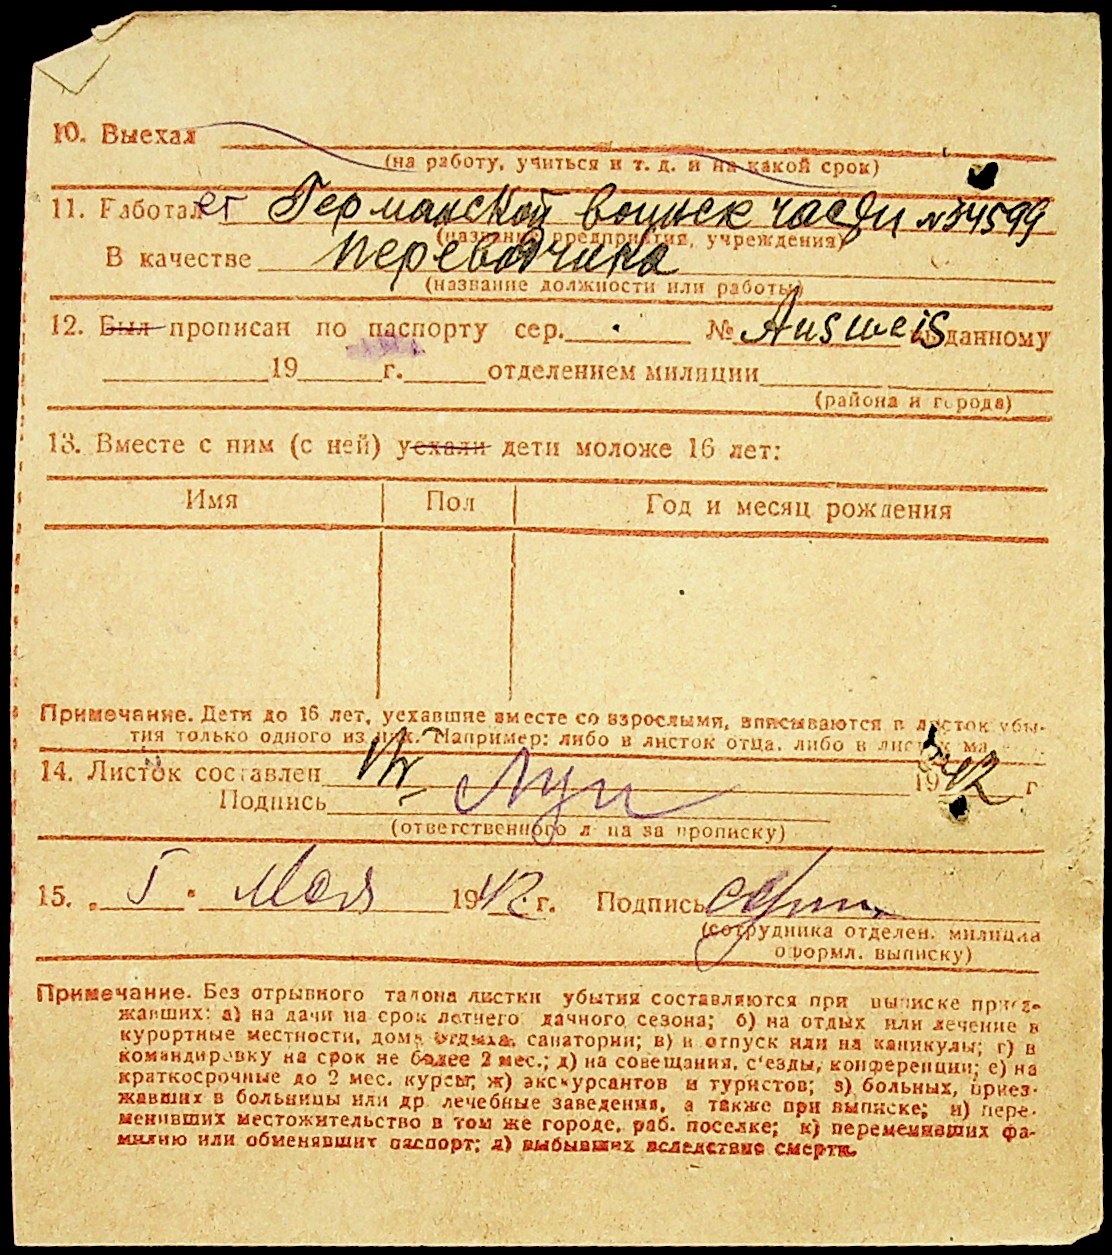 10. Выехал
(на работу, учиться и т. д. и на какой срок)
11. Работает Германской воинск части №34599
(название предприятия, учреждения)
В качестве переводчика
(название должности или работы)
12. Был прописан по паспорту сер. № Ausweis выданному
19 г. отделением милиции
(района и города)
13. Вместе с ним (с ней) уехали дети моложе 16 лет:
Имя Пол Год и месяц рождения
Примечание. Дети до 16 лет, уехавшие вместе со взрослыми, вписываются в листок убы-
тия только одного из них. Например: либо в листок отца, либо в листок ма
14. Листок составлен 1942 г
Подпись
(ответственного лица за прописку)
15. „ 5 " Мая 1942 г. Подпись
(сотрудника отделен. милиции
оформл. выписку)
Примечание. Без отрывного талона листки убытия составляются при выписке приез-
жавших: а) на дачи на срок летнего дачного сезона; б) на отдых или лечение в
курортные местности, дома отдыха, санатории; в) в отпуск или на каникулы; г) в
командировку на срок не более 2 мес.; д) на совещания, с'езды, конференции; е) на
краткосрочные до 2 мес. курсы; ж) экскурсантов и туристов; з) больных, приез-
жавших в больницы или др. лечебные заведения, а также при выписке; и) пере-
менивших местожительство в том же городе, раб. поселке; к) переменивших фа-
милию или обменявших паспорт; л) выбывших вследствие смерти.